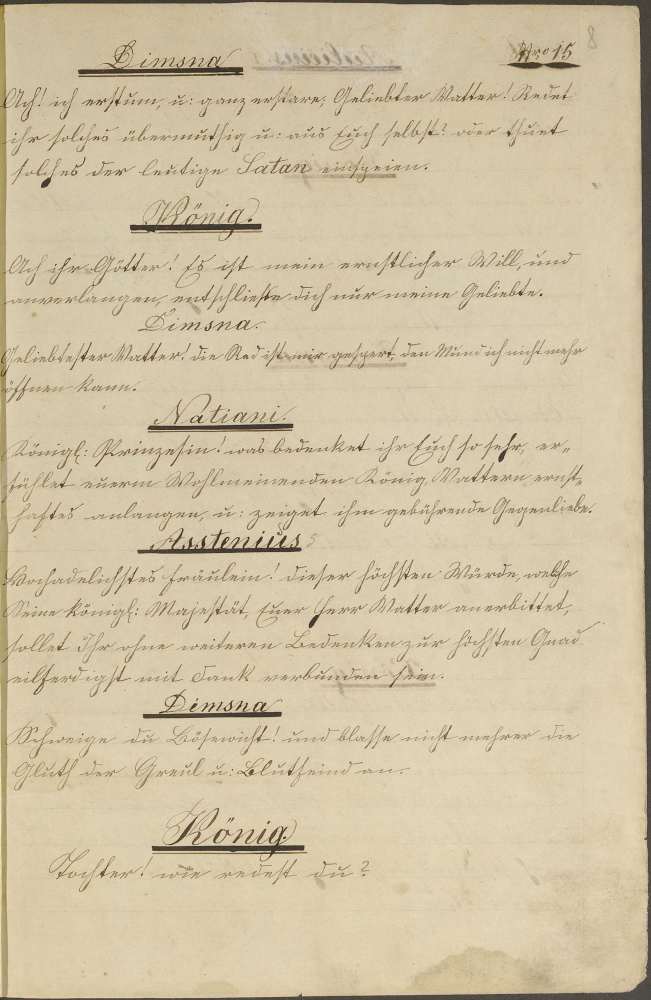 Dimsna
Nro 15
8
Ach! ich erstum, u: ganz erstare, Geliebter Vatter! Redet
ihr solches übermuthig u: aus Euch selbst? oder thuet
solches der leutige Satan einspeien.
König.
Ach ihr Götter! Es ist mein ernstlicher Will, und
anverlangen, entschließe dich nur meine Geliebte.
Dimsna.
Geliebtester Vatter! die Red ist mir gespert, den Mund ich nicht mehr
öffnen kann.
Natiani.
Königl: Prinzesin! was bedenket ihr Euch so sehr, er„
fühlet euerm Wohlmeinenden König, Vattern ernst„
haftes anlangen, u: zeiget ihm gebührende Gegenliebe.
Asstenius
Hochadelichstes Fräulein! dieser höchsten Würde, welche
Seine Königl: Majestät, Euer Herr Vatter anerbittet,
sollet Ihr ohne weiteren Bedenken zur höchsten Gnad
eilferdigst mit Dank verbunden sein.
Dimsna
Schweige du Bösewicht! und blasse nicht mehrer die
Gluth der Greul u: Blutfeind an.
König
Tochter! wie redest du?